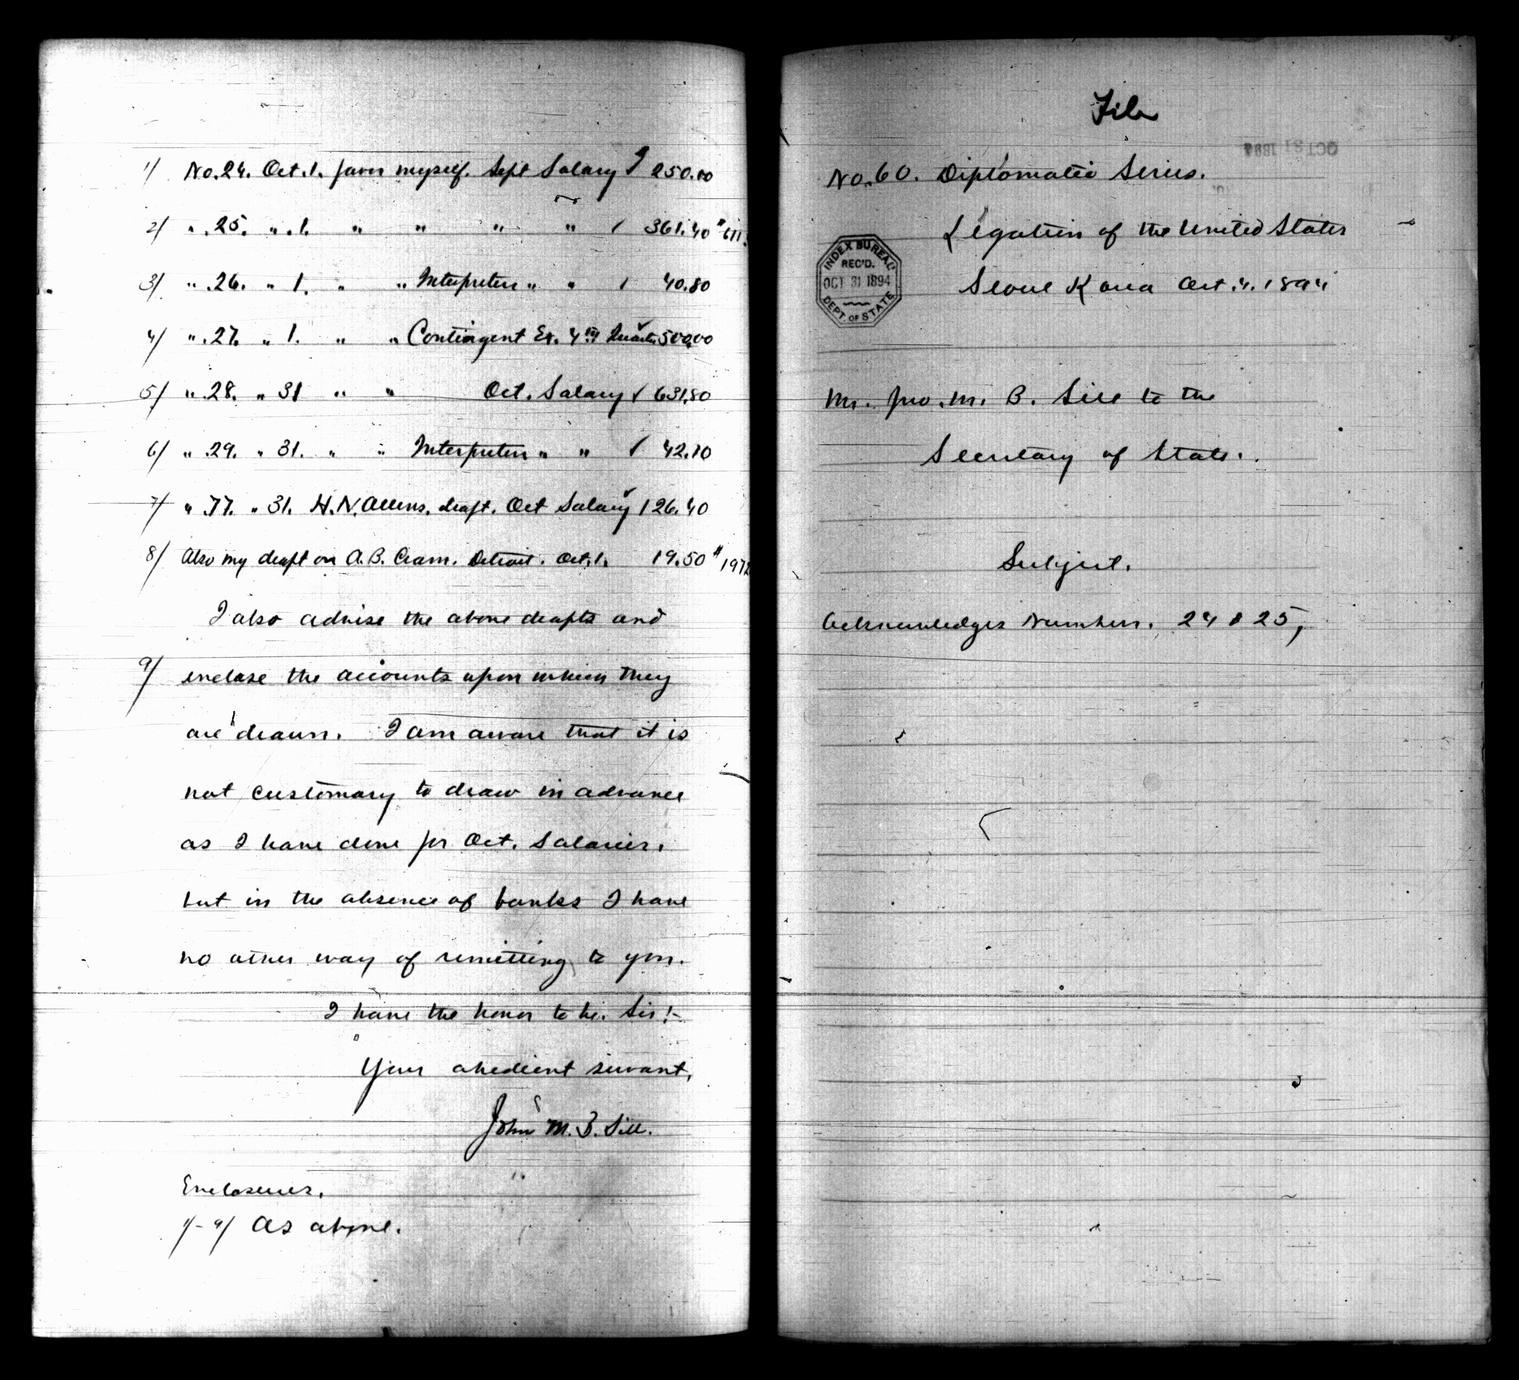 1/ No. 24. Oct. 1. favor myself. Sept Salary 250.00
2/ " . 25. " . 1. " " " " 361.40 " 611.
3/ " . 26. " 1. " " Interpreters " " 40.80
4/ " . 27. " 1. " " Contingent Ex. 4th Quarter 500.00
5/ " . 28. " 31 " " Oct. Salary 631.80
6/ " . 29. " 31. " " Interpreters " " 42.10
7/ " . 77. " 31. H. N. Allens. draft. Oct Salary 126.40
8/ Also my draft on A. B. Cram. Detroit. Oct. 1. 19.50
I also advise the above drafts and
9/ enclose the accounts upon which they
are drawn. I am aware that it is
not customary to draw in advance
as I have done for Oct. Salaries,
but in the absence of banks I have
no other way of remitting to you.
I have the honor to be. Sir:-
Your obedient servant,
John M. B. Sill.
Enclosures.
1/-9/ As above.
File
OCT 31 1894
No. 60. Diplomatic Series.
Legation of the United States
Seoul Korea Oct. 4. 1894
INDEX BUREAU
REC'D.
OCT 31 1894
DEPT. OF STATE
Mr. Jno. M. B. Sill to the
Secretary of State.
Subject.
Acknowledges Numbers. 24 & 25,